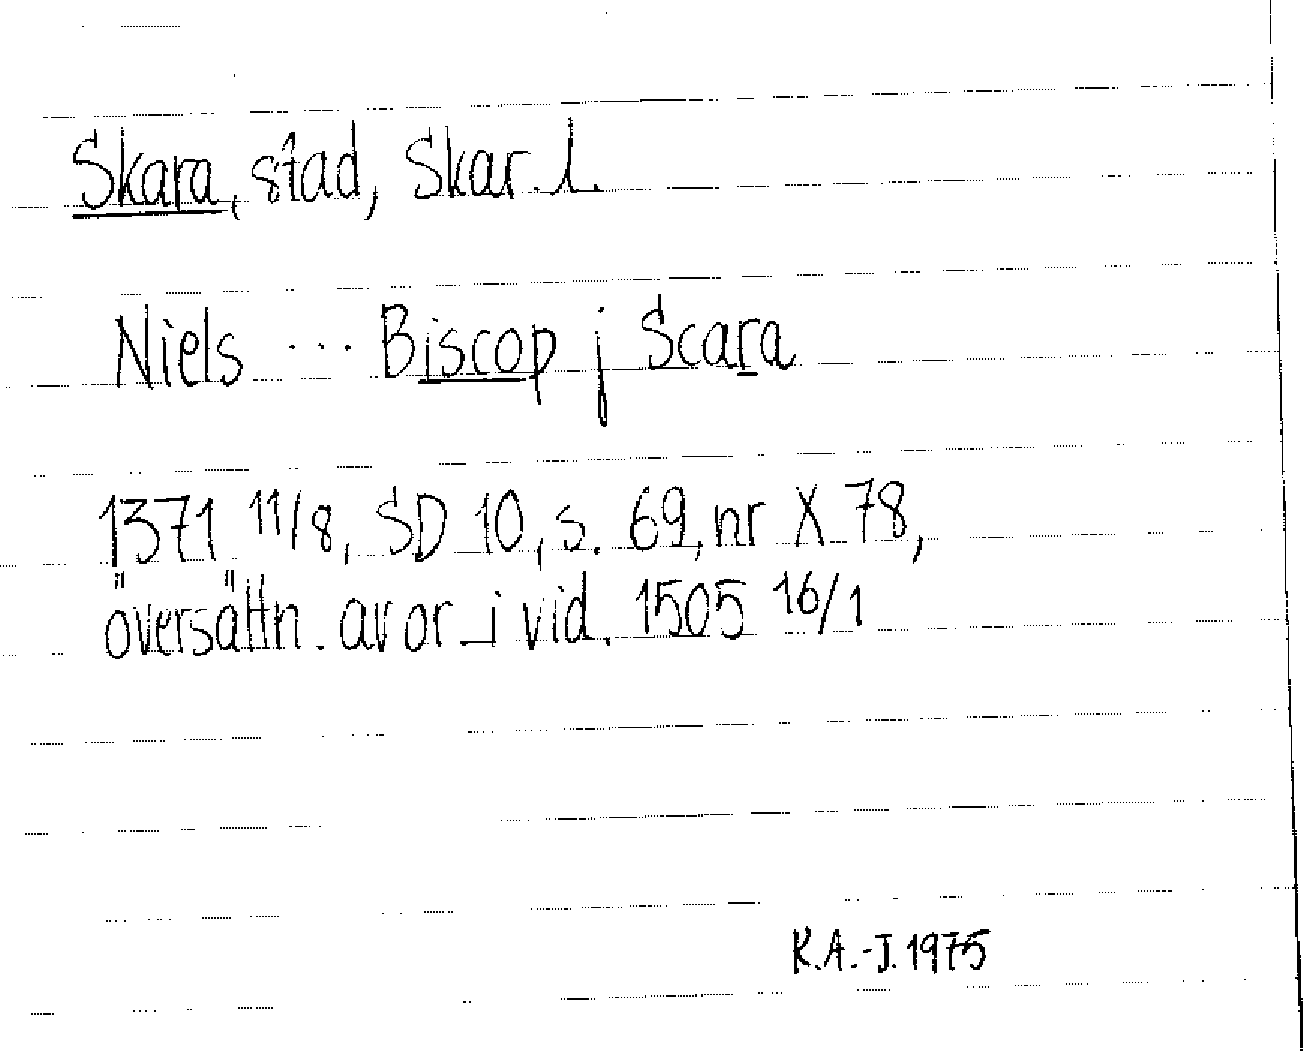 Skara, stad, Skar. l.
Niels ... Biscop j Scara
1371 11/8, SD 10, s. 69, nr X 78,
översättn. av or. i vid. 1505 16/1
K.A.-J. 1975